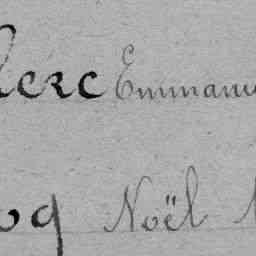 lerc Emmanu
og Noël